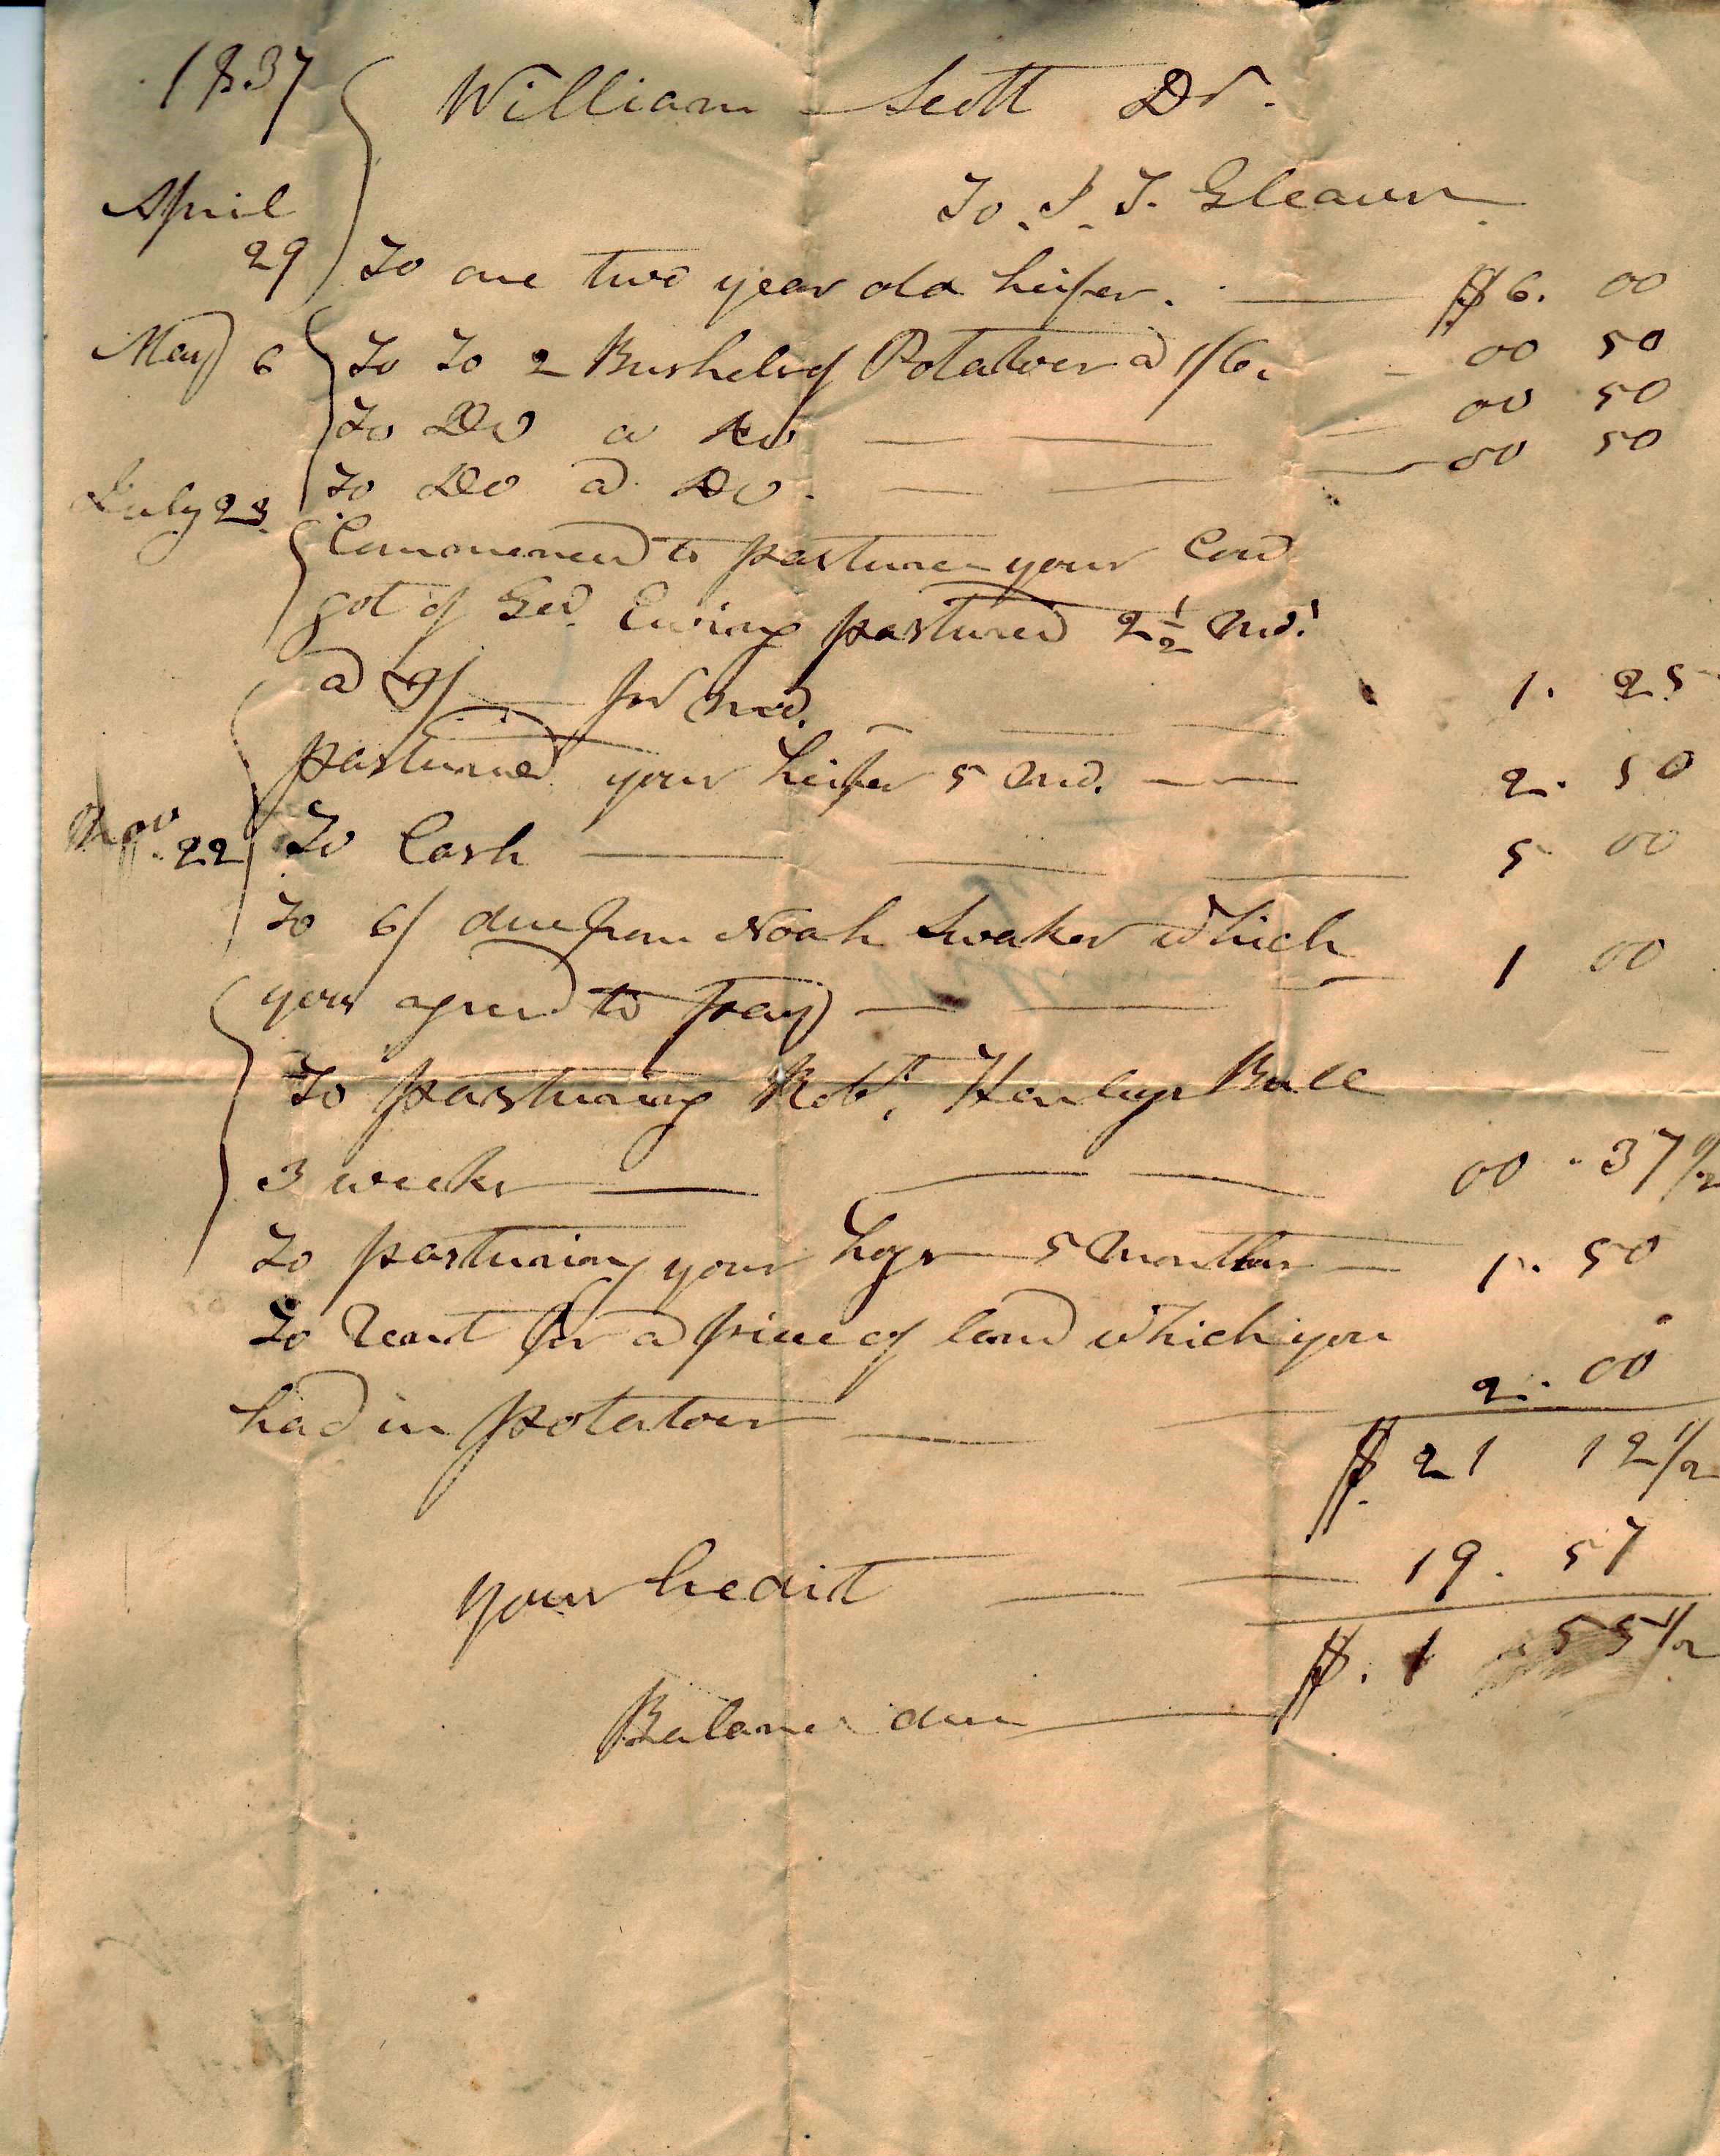 1837 William Scott Dr.
To. J. T. Gleaves
April
29 To one two year old heifer. $6. 00
May 6 To To 2 Bushels of Potatoes a 1/6. 00 50
To Do a Do 00 50
To Do a Do. 00 50
July 23.
Commenced to pasture your Cow
got of Geo. Ewing pastured 2 1/2 mo.
a 3/ pr mo. 1. 25
pastured your heifer 5 mo. 2. 50
Nov. 22 To Cash 5 00
To 6/ due from Noah which
you agreed to pay 1 00
To pasturing Robt. Henleys Bull
3 weeks 00 . 37 1/2
To pasturing your hogs 5 months 1. 50
To Rent for a piece of land which you
had in potatoes 2. 00
$ 21 12 1/2
your credit 19. 57
$. 1 55 1/2
Balance due